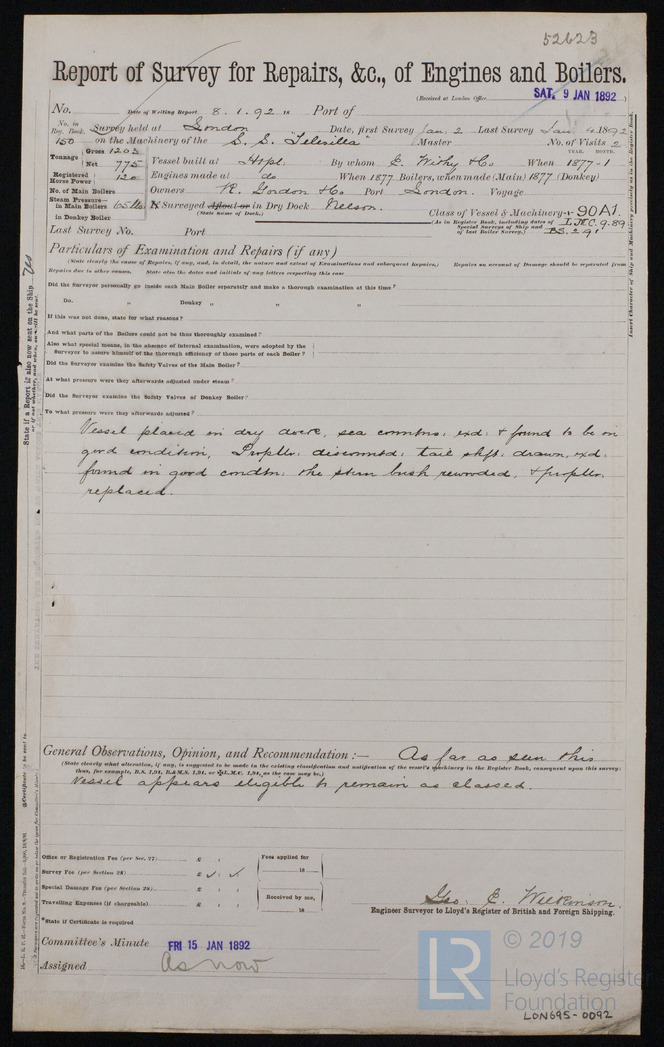 52623
Report of Survey for Repairs, &c., of Engines and Boilers.
(Received at London Office SAT. 9 JAN 1892 )
No. Date of Writing Report 8.1.92 18 Port of
No. in Reg. Book. Survey held at London Date, first Survey Jan. 2 Last Survey Jan. 4 1892
150 on the Machinery of the S.S. "Telesilla" Master No. of Visits 2
Tonnage Gross 1203
Net 775
Vessel built at Htpl. By whom E. Withy & Co. When YEAR. MONTH. 1877-1
Registered Horse Power 120 Engines made at do When 1877 Boilers, when made (Main) 1877 (Donkey)
No. of Main Boilers Owners R. Gordon & Co Port London. Voyage
Steam Pressure in Main Boilers 65 lbs. If Surveyed Afloat or in Dry Dock Nelson.
(State name of Dock.)
in Donkey Boiler
Class of Vessel & Machinery 90A1.
(As in Register Book, including dates of Special Surveys of Ship and of last Boiler Survey.) LMC. 9.89
BS. 2 91
Last Survey No. Port
Particulars of Examination and Repairs (if any)
(State clearly the cause of Repairs, if any, and, in detail, the nature and extent of Examinations and subsequent Repairs.) Repairs on account of Damage should be separated from
Repairs due to other causes. State also the dates and initials of any letters respecting this case
Did the Surveyor personally go inside each Main Boiler separately and make a thorough examination at this time?
Do. " Donkey " " "
If this was not done, state for what reasons?
And what parts of the Boilers could not be thus thoroughly examined?
Also what special means, in the absence of internal examination, were adopted by the
Surveyor to assure himself of the thorough efficiency of those parts of each Boiler?
Did the Surveyor examine the Safety Valves of the Main Boiler?
At what pressure were they afterwards adjusted under steam?
Did the Surveyor examine the Safety Valves of Donkey Boiler?
To what pressure were they afterwards adjusted?
Vessel placed in dry dock, sea conntns: exd: & found to be in
good condition, Propllr: disconntd: tail shft: drawn, exd:
found in good condtn: the stern bush rewooded, & propllr.
replaced.
General Observations, Opinion, and Recommendation :— As far as seen this
(State clearly what alteration, if any, is suggested to be made in the existing classification and notification of the vessel's machinery in the Register Book, consequent upon this survey:
thus, for example, B.S. 1,91, B.&M.S. 1,91, or ✠L.M.C. 1,91, as the case may be.)
Vessel appears eligible to remain as classed.
Office or Registration Fee (per Sec. 27) £ : :
Survey Fee (per Section 28) £
Special Damage Fee (per Section 28) £ : :
Travelling Expenses (if chargeable) £ : :
Fees applied for
18
Received by me,
18
*State if Certificate is required
Geo. E. Wilkinson.
Engineer Surveyor to Lloyd's Register of British and Foreign Shipping.
Committee's Minute FRI 15 JAN 1892
Assigned As now
State if a Report is also now sent on the Ship Yes
or if not whether, and when, one will be sent.
Insert Character of Ship and Machinery precisely as in the Register Book.
LR © 2019
Lloyd's Register
Foundation
LON695-0092